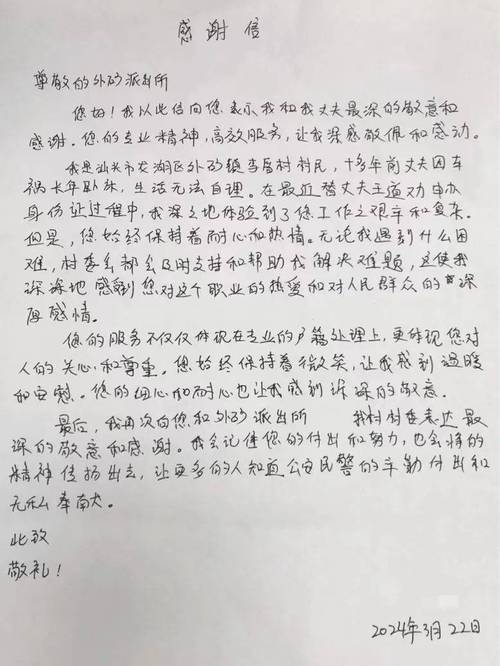 感谢信
尊敬的外砂派出所
您好！我以此信向您表示我和我丈夫最深的敬意和
感谢。您的专业精神，高效服务，让我深感敬佩和感动。
我是汕头市龙湖区外砂镇李厝村村民，十多年前丈夫因车
祸长年卧床，生活无法自理。在最近替丈夫王道功申办
身份证过程中，我深深地体验到了您工作之艰辛和复杂。
但是，您始终保持着耐心和热情。无论我遇到什么困
难，村委会都会及时支持和帮助我解决难题，这使我
深深地感到您对这个职业的热爱和对人民群众的深
厚感情。
您的服务不仅仅体现在专业的户籍处理上，更体现您对
人的关心和尊重。您始终保持着微笑，让我感到温暖
和安慰。您的细心和耐心也让我感到深深的敬意。
最后，我再次向您和外砂派出所 我村村委表达最
深的敬意和感谢。我会记住您的付出和努力，也会将的
精神传扬出去，让更多的人知道公安民警的辛勤付出和
无私奉献。
此致
敬礼！
2024年3月22日